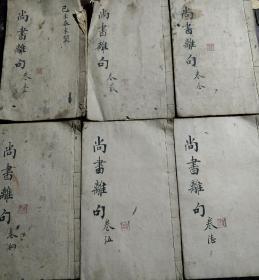 己未春末製
尚書離句
卷壹
尚書離句
卷貳
尚書離句
卷叁
尚書離句
卷肆
尚書離句
卷伍
尚書離句
卷陸